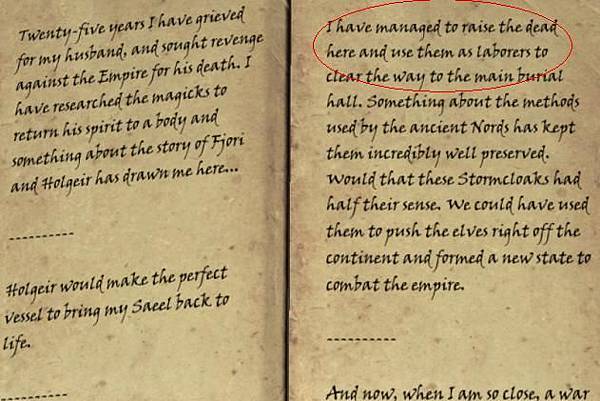 Twenty-five years I have grieved
for my husband, and sought revenge
against the Empire for his death. I
have researched the magicks to
return his spirit to a body and
something about the story of Fjori
and Holgeir has drawn me here...
-----------
Holgeir would make the perfect
vessel to bring my Saeel back to
life.
-----------
I have managed to raise the dead
here and use them as laborers to
clear the way to the main burial
hall. Something about the methods
used by the ancient Nords has kept
them incredibly well preserved.
Would that these Stormcloaks had
half their sense. We could have used
them to push the elves right off the
continent and formed a new state to
combat the empire.
-----------
And now, when I am so close, a war